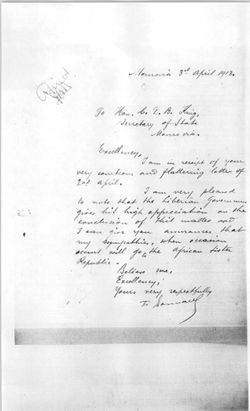 Monrovia 3rd April 1912.
To Hon. C. D. B. King,
Secretary of State
Monrovia.
Excellency,
I am in receipt of your
very courteous and flattering letter of
2nd April.
I am very pleased
to note that the Liberian Government
gives his high appreciation on the
conclusion of this matter and
I can give you assurances that
my sympathies, when occasion
occurs will go to the African Sister
Republic.
Believe me,
Excellency,
Yours very respectfully